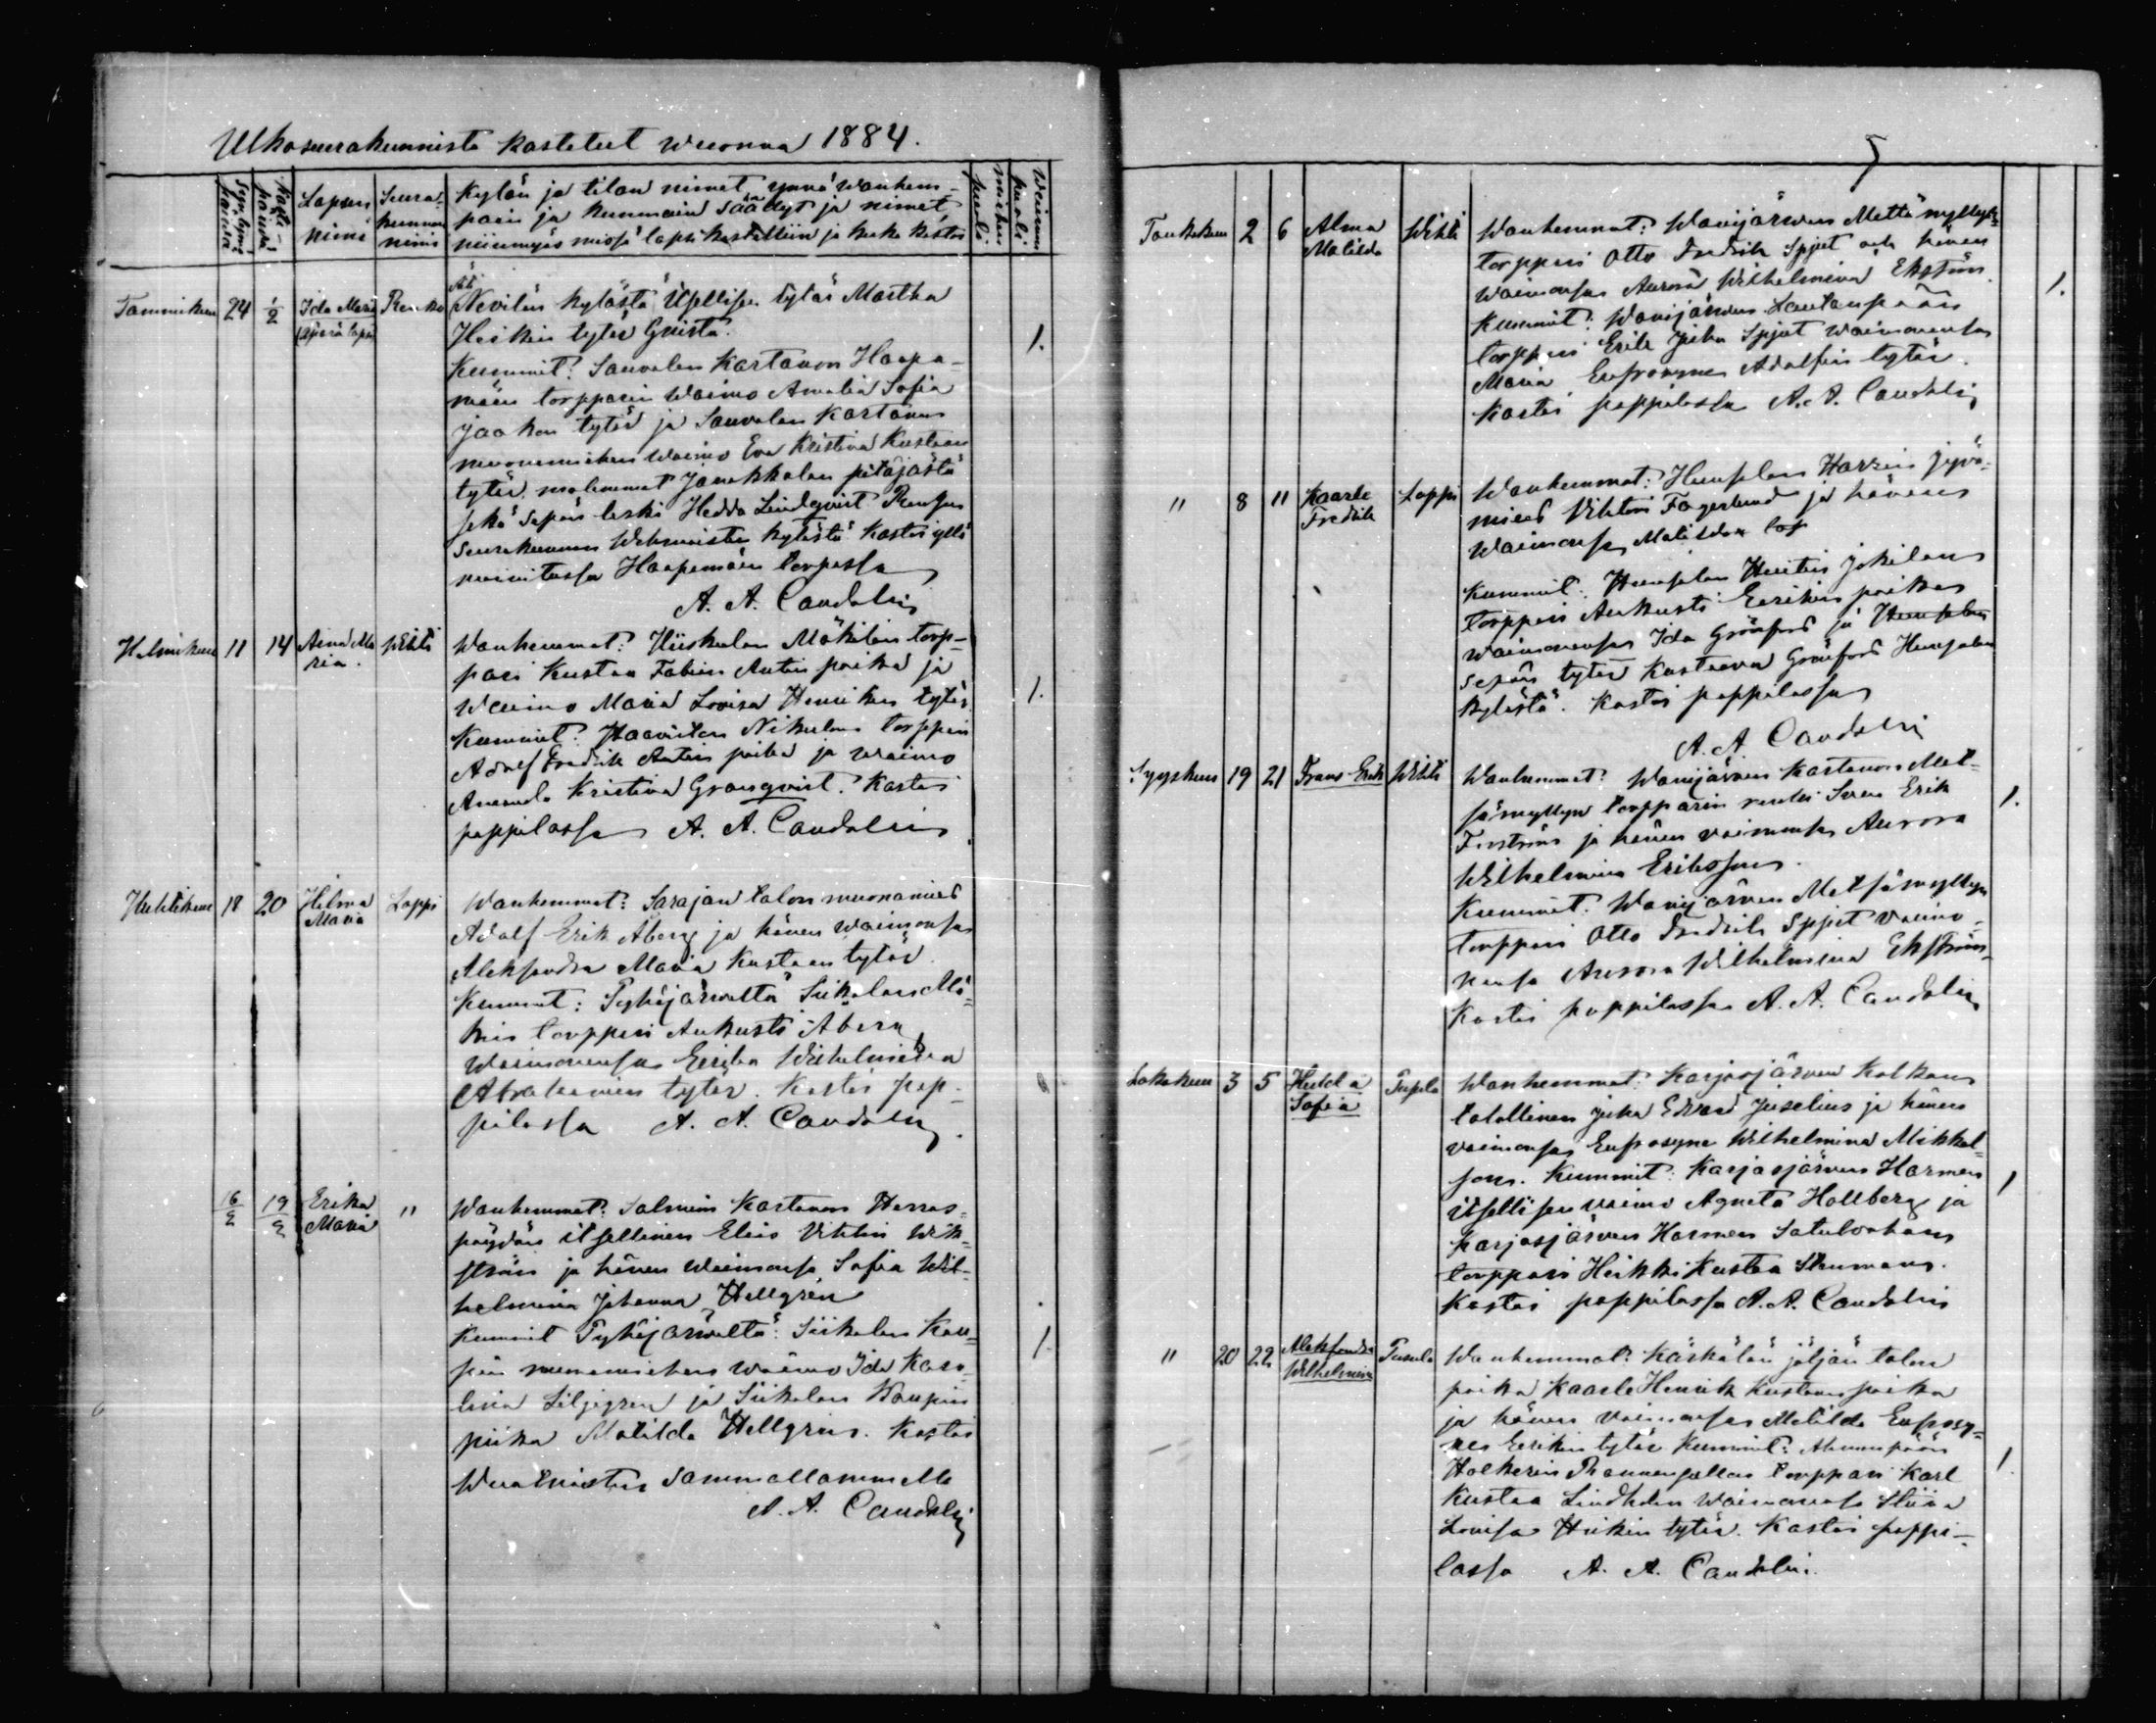 Ulkoseurakunnista kastetut wuonna 1884.
Syntymä päivä
Kaste- päivä
Lapsen nimi
Seura- kunnan nimi
Kylän ja tilan nimet, ynnä wanhem-
pain ja kummain säädyt ja nimet,
niinmyös missä lapsi kastettiin ja kuka kastoi
Miehen puoli
Waimon puoli
Tammikuu 24 1/2 Ida Maria Renko
Nevilän kylästä Itsellisen tytär Martha
Heikin tytär
1.
Kummit: Sauvalan Kartanon Haapa-
mäen torpparin Waimo Amalia Sofia
Jaakon tytär ja Sauvalan Kartanon
muonamiehen Waimo Eva Kristina Kustaan
tytär, molemmat Janakkalan pitäjästä
sekä Sepän leski Hedda Lindqvist Rengon
Seurakunnan kylästä Kastoi yllä
mainitussa Haapamäen torpassa
A. A. Candolin
Helmikuu 11 14 Aina Ma
ria. Wihti
Wanhemmat: Hiiskulan Mäkilän torp-
pari Kustaa Fabian Antin poika ja
Waimo Maria Lovisa Henrikin tytär
1.
Kummit: Haaviston Nikulan torppari
Adolf Fredrik Antin poika ja waimo
Amanda Kristina Granqvist. Kastoi
pappilassa A. A. Candolin
Huhtikuu 18 20 Hilma
Maria Loppi
Wanhemmat: Sarajan talon muonamies
Adolf Erik Åberg ja hänen waimonsa
Aleksandra Maria Kustaan tytär.
Kummit: Pyhäjärweltä Siikalan Mä-
kin torppari Aukusti Åberg
Waimonensa Eerika Wilhelmina
Abrahamin tytär. Kastoi pap-
pilassa A. A. Candolin.
16/2 19/2 Erika
Maria "
Wanhemmat: Salmin Kartanon Herras-
pöydän itsellinen Elias Vihtin Wik-
ström ja hänen Waimonsa Sofia Wil-
helmina Johanna Hellgrén
1.
Kummit Pyhäjärweltä: Siikalan Kau-
pin muonamiehen waimo Ida Karo-
lina Liljegren ja Siikalan Kaupin
piika Matilda Hellgrén. Kastoi
sammallammilla
A. A. Candolin
5
Toukokuu 2 6 Alma
Matilda Wihti
Wanhemmat: Wanjärwen Mettämyllyn
torppari Otto Fredrik Spjut och hänen
waimonsa Aurora Wilhelmina Ekström.
1.
Kummit: Wanjärwen Lautanpään
torppari Erik Juha Spjut waimonensa
Maria Eufrosyne Adolfin tytär.
Kastoi pappilassa A. A. Candolin
" 8 11 Kaarle
Fredrik Loppi
Wanhemmat: Hunsalan Harrin jyvä-
mies Vihtori Fagerlund ja hänen
waimonsa Matilda
Kummit: Hunsalan Jokilan
torppari Aukusti Eerikin poika
waimonensa Ida Grönfors ja Hunsalan
Sepän tytär Kustaava Grönfors Hunsalan
kylästä. Kastoi pappilassa
A. A. Candolin
Syyskuu 19 21 Frans Erik Wihti
Wanhemmat: Wanjärwen Kartanon Met-
sämyllyn torpparin renki Sven Erik
1.
ja hänen vaimonsa Aurora
Wilhelmina Eriksson.
Kummit: Wanjärwen Metsämyllyn
torppari Otto Fredrik Spjut vaimo-
nensa Aurora Wilhelmina Ekström
Kastoi pappilassa A. A. Candolin
Lokakuu 3 5 Hulda
Sofia Pusula
Wanhemmat: Karjasjärwen Kolkan
talollinen Juha Edvard Juselius ja hänen
vaimonsa Eufrosyne Wilhelmina Mikkel-
son. Kummit: Karjasjärwen Harmen
1
itsellisen vaimo Agneta Hollberg ja
Karjasjärwen Harmen
torppari Heikki Kustaa
Kastoi pappilassa A. A. Candolin
" 20 22 Aleksandra
Wilhelmina Pusula
Wanhemmat: Käskälän jäljän talon
poika Kaarle Henrik Kustaan poika
ja hänen vaimonsa Matilda Eufrosy-
ne Eerikin tytär Kummit: Ahonpään
1.
Holkerin torppari Karl
Kustaa Lindholm waimonensa
Lovisa Heikin tytär. Kastoi pappi-
lassa A. A. Candolin.